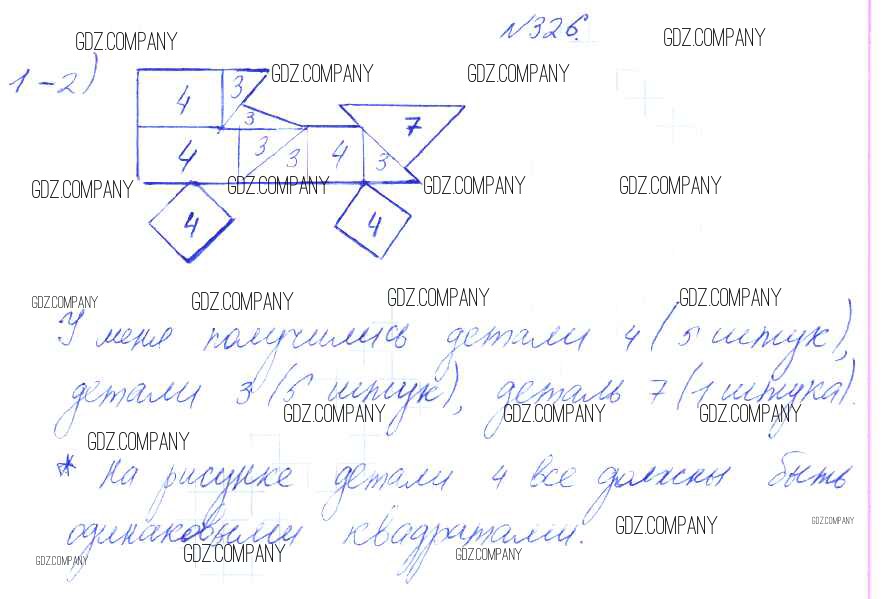 №326.
GDZ.COMPANY GDZ.COMPANY
1-2)
GDZ.COMPANY GDZ.COMPANY
4 3
3 7
4 3 3 4 3
GDZ.COMPANY GDZ.COMPANY GDZ.COMPANY GDZ.COMPANY
4 4
GDZ.COMPANY GDZ.COMPANY GDZ.COMPANY GDZ.COMPANY
У меня получились детали 4 (5 штук),
детали 3 (5 штук), деталь 7 (1 штука).
GDZ.COMPANY GDZ.COMPANY GDZ.COMPANY
GDZ.COMPANY
* На рисунке детали 4 все должны быть
одинаковыми квадратами.
GDZ.COMPANY GDZ.COMPANY
GDZ.COMPANY GDZ.COMPANY GDZ.COMPANY